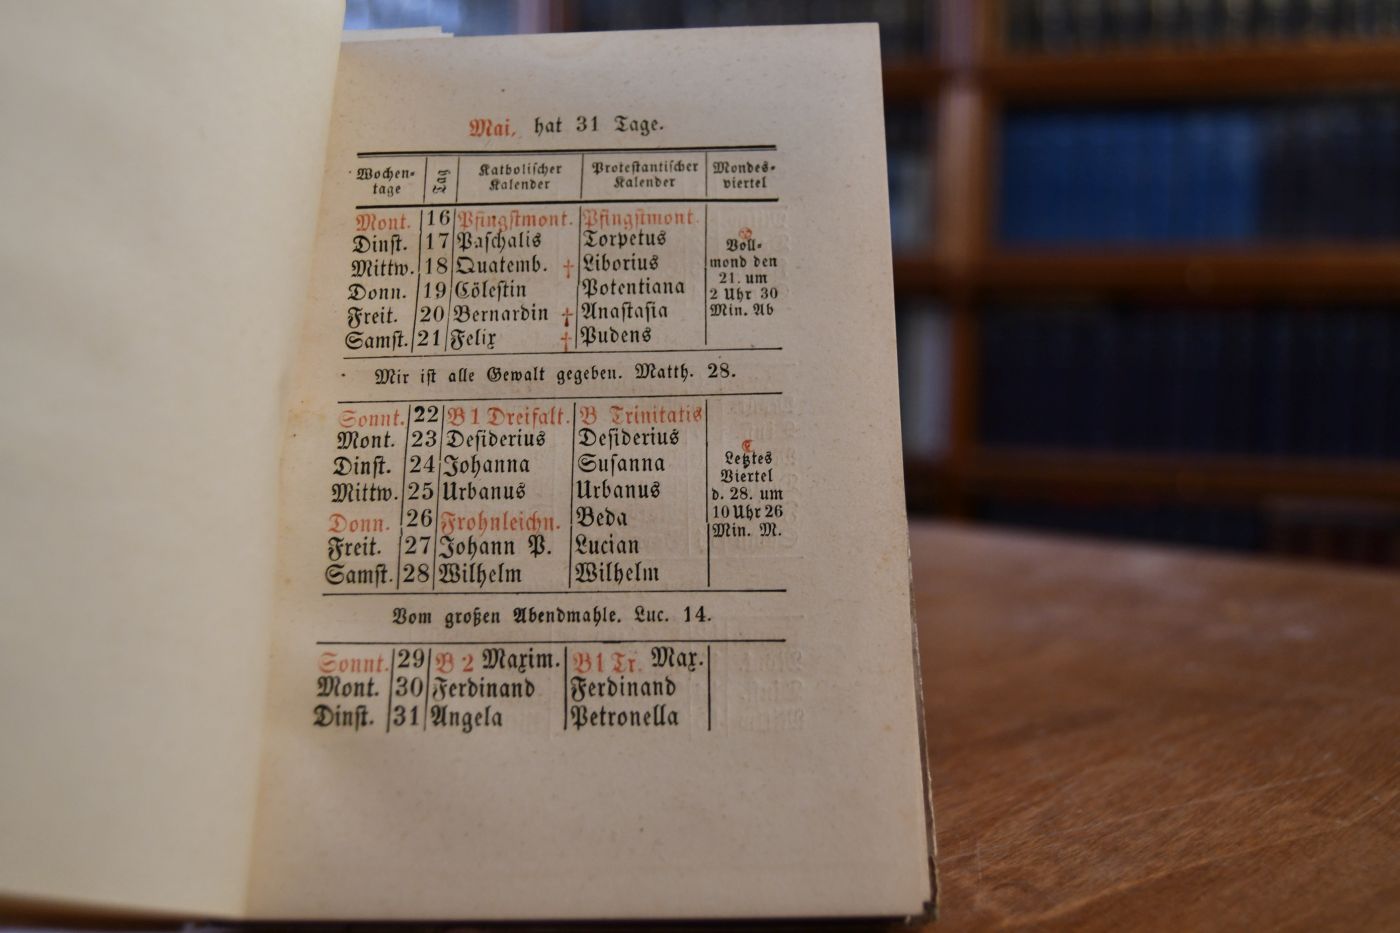 Mai, hat 31 Tage.
Wochen-tage | Tag | Katholischer Kalender | Protestantischer Kalender | Mondes-viertel
Mont. 16 Pfingstmont. Pfingstmont.
Dinst. 17 Paschalis Torpetus
Mittw. 18 Quatemb. † Liborius
Donn. 19 Cölestin Potentiana
Freit. 20 Bernardin † Anastasia
Samst. 21 Felix † Pudens
Voll-
mond den
21. um
2 Uhr 30
Min. Ab
Mir ist alle Gewalt gegeben. Matth. 28.
Sonnt. 22 B 1 Dreifalt. B Trinitatis
Mont. 23 Desiderius Desiderius
Dinst. 24 Johanna Susanna
Mittw. 25 Urbanus Urbanus
Donn. 26 Frohnleichn. Beda
Freit. 27 Johann P. Lucian
Samst. 28 Wilhelm Wilhelm
Letztes
Viertel
d. 28. um
10 Uhr 26
Min. M.
Vom großen Abendmahle. Luc. 14.
Sonnt. 29 B 2 Maxim. B 1 Tr. Max.
Mont. 30 Ferdinand Ferdinand
Dinst. 31 Angela Petronella